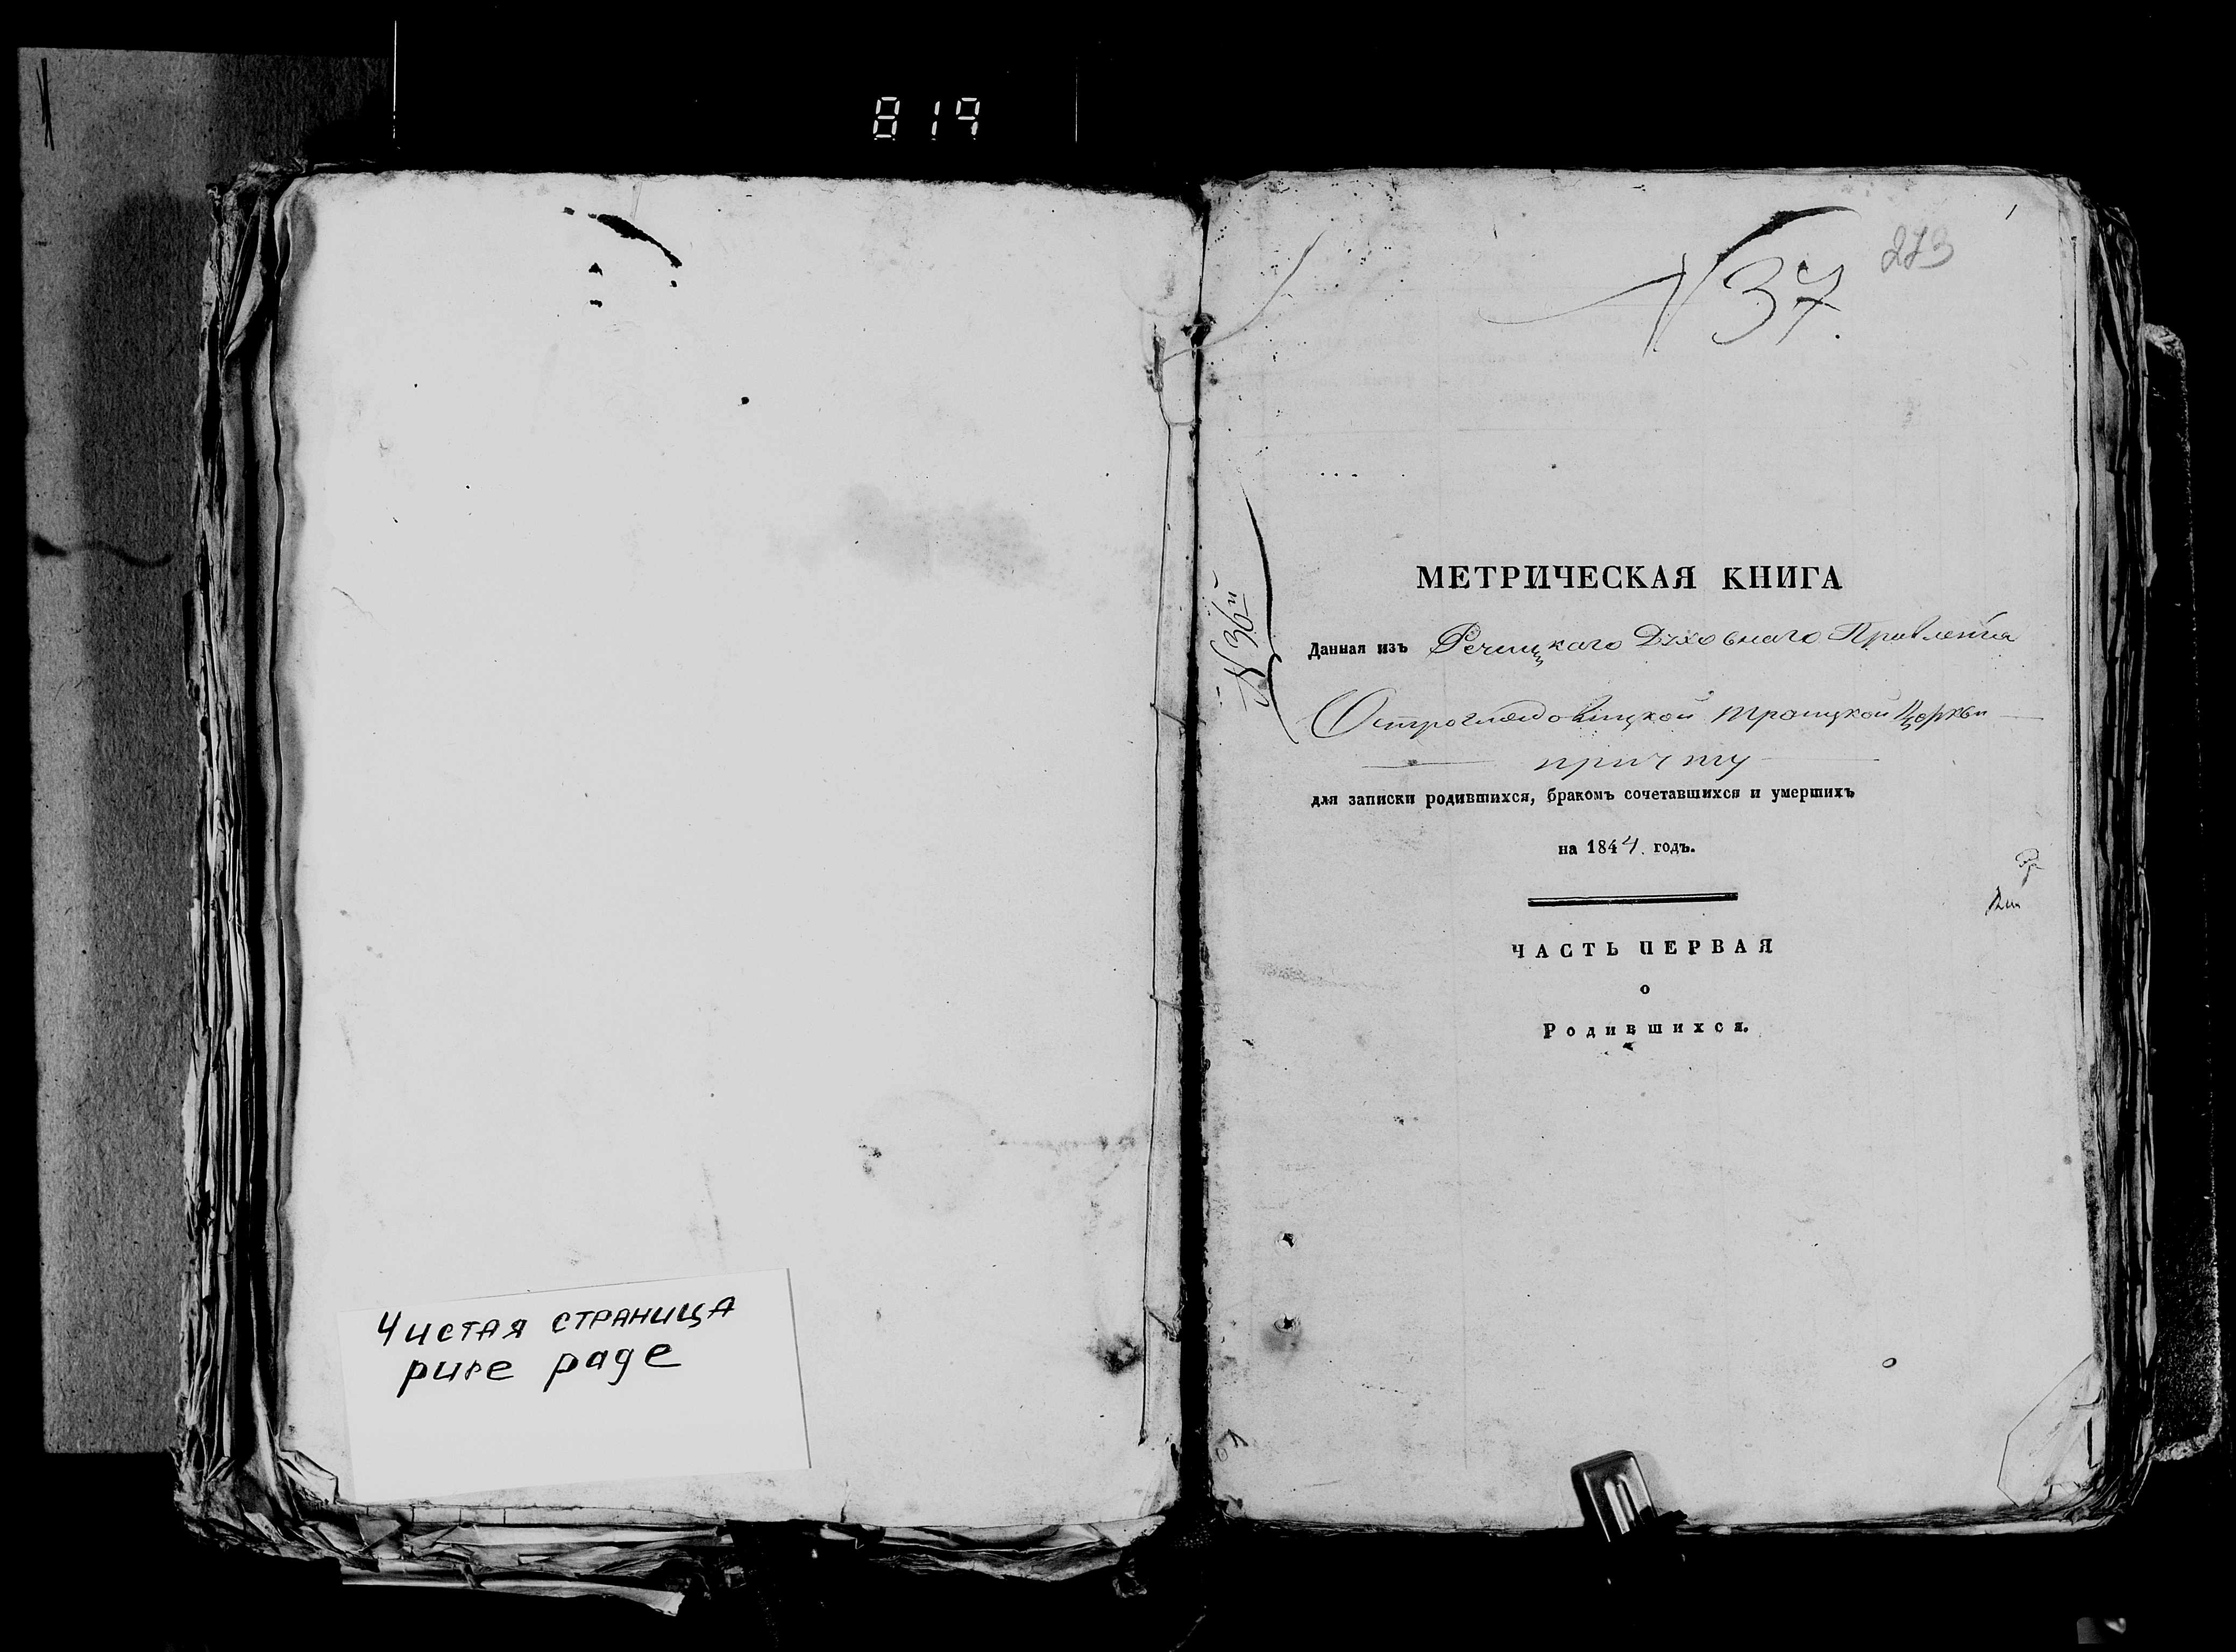 819
Чистая страница
pure page
273
№ 37.
№ 36й
МЕТРИЧЕСКАЯ КНИГА
Данная изъ Речицкаго Духовнаго Правленія
Остроглядовицкой Троицкой Церкви
причту
для записки родившихся, бракомъ сочетавшихся и умершихъ
на 1844. годъ.
ЧАСТЬ ПЕРВАЯ
о
Родившихся.